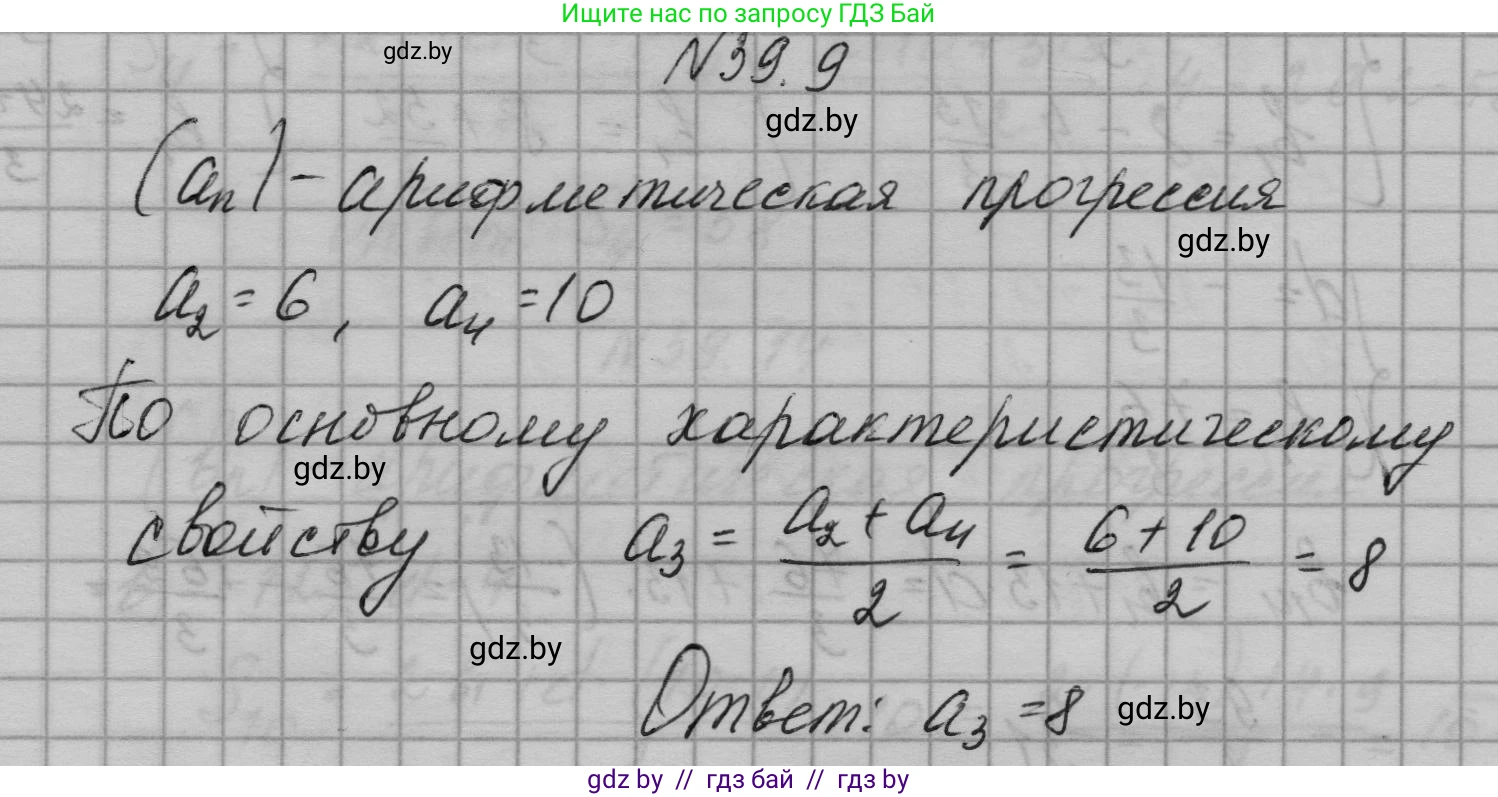 Ищите нас по запросу ГДЗ Бай
gdz.by
N39.9
gdz.by
(aₙ) - арифметическая прогрессия
gdz.by
a₂ = 6, a₄ = 10
По основному характеристическому
gdz.by
свойству a₃ = (a₂ + a₄)/2 = (6 + 10)/2 = 8
gdz.by
Ответ: a₃ = 8 gdz.by
gdz by // гдз бай // гдз by